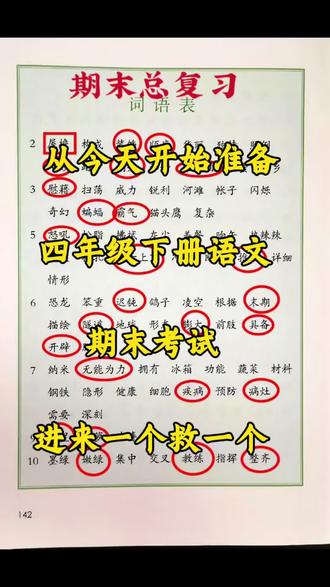 期末总复习
词语表
2 屋檐 构成 装饰
从今天开始准备
3 慰藉 扫荡 威力 锐利 河滩 帐子 闪烁
奇幻 蝙蝠 霸气 猫头鹰 复杂
5 怒吼
四年级下册语文
详细
情形
6 恐龙 笨重 迟钝 鸽子 凌空 根据 末期
描绘 隧道 地球 膨大 前肢 具备
开辟
期末考试
7 纳米 无能为力 拥有 冰箱 功能 蔬菜 材料
钢铁 隐形 健康 细胞 疾病 预防 病灶
需要 深刻
进来一个救一个
10 墨绿 嫩绿 集中 交叉 教练 指挥 整齐
142